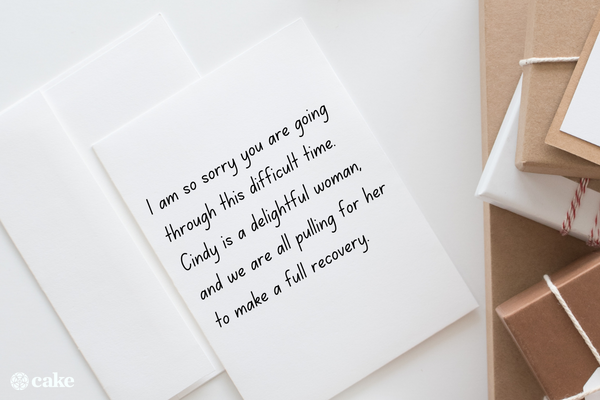 I am so sorry you are going
through this difficult time.
Cindy is a delightful woman,
and we are all pulling for her
to make a full recovery.
cake